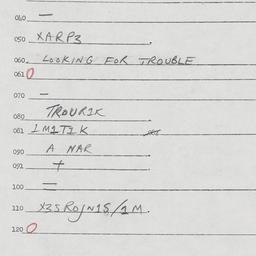 040. —
050 XARP3
060. LOOKING FOR TROUBLE
061 O
070 —
TROUR1K
080
081 1M1T1K
090 A NAR
091 +
100 =
110 X35R0JN1S/1M.
120 O